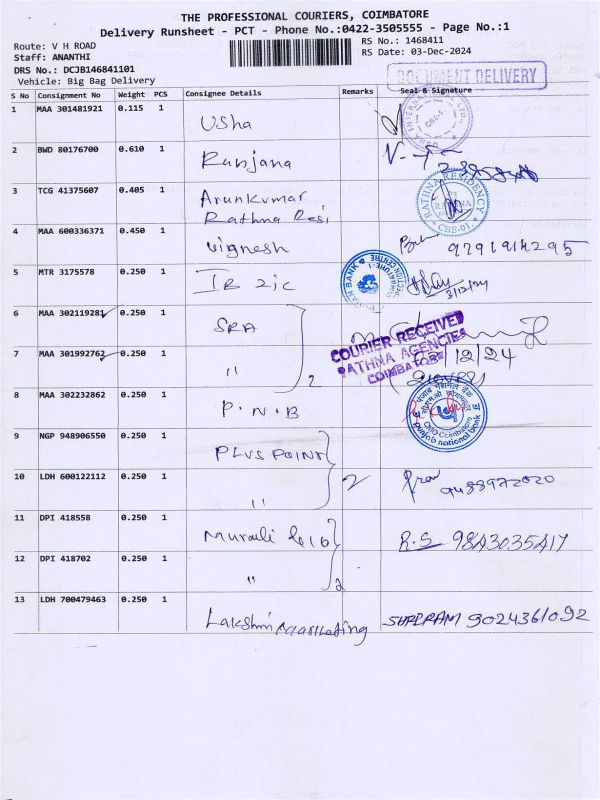 THE PROFESSIONAL COURIERS, COIMBATORE
Delivery Runsheet - PCT - Phone No.:0422-3505555 - Page No.:1
Route: V H ROAD
Staff: ANANTHI
RS No.: 1468411
RS Date: 03-Dec-2024
DRS No.: DCJB146841101
Vehicle: Big Bag Delivery
DOCUMENT DELIVERY
S No Consignment No Weight PCS Consignee Details Remarks Seal & Signature
1 MAA 301481921 0.115 1 Usha
CBE-1
2 BWD 80176700 0.610 1 Runjana
3 TCG 41375607 0.405 1 Arunkumar
Rathna Resi
RATHNA RESIDENCY
RATHNA
CBE-01.
4 MAA 600336371 0.450 1 vignesh 9791914295
5 MTR 3175578 0.250 1 3/12/24
6 MAA 302119281 0.250 1 SRA
COURIER RECEIVED
RATHNA AGENCIES
COIMBATORE
7 MAA 301992762 0.250 1 " 2 03/12/24
8 MAA 302232862 0.250 1 P.N.B
पंजाब नैशनल बैंक
punjab national bank
9 NGP 948906550 0.250 1 PLUS POINT
10 LDH 600122112 0.250 1 " 2 9488972020
11 DPI 418558 0.250 1 Murali R.S 9843035417
12 DPI 418702 0.250 1 " 2
13 LDH 700479463 0.250 1 Lakshmi Marketing 9024361092